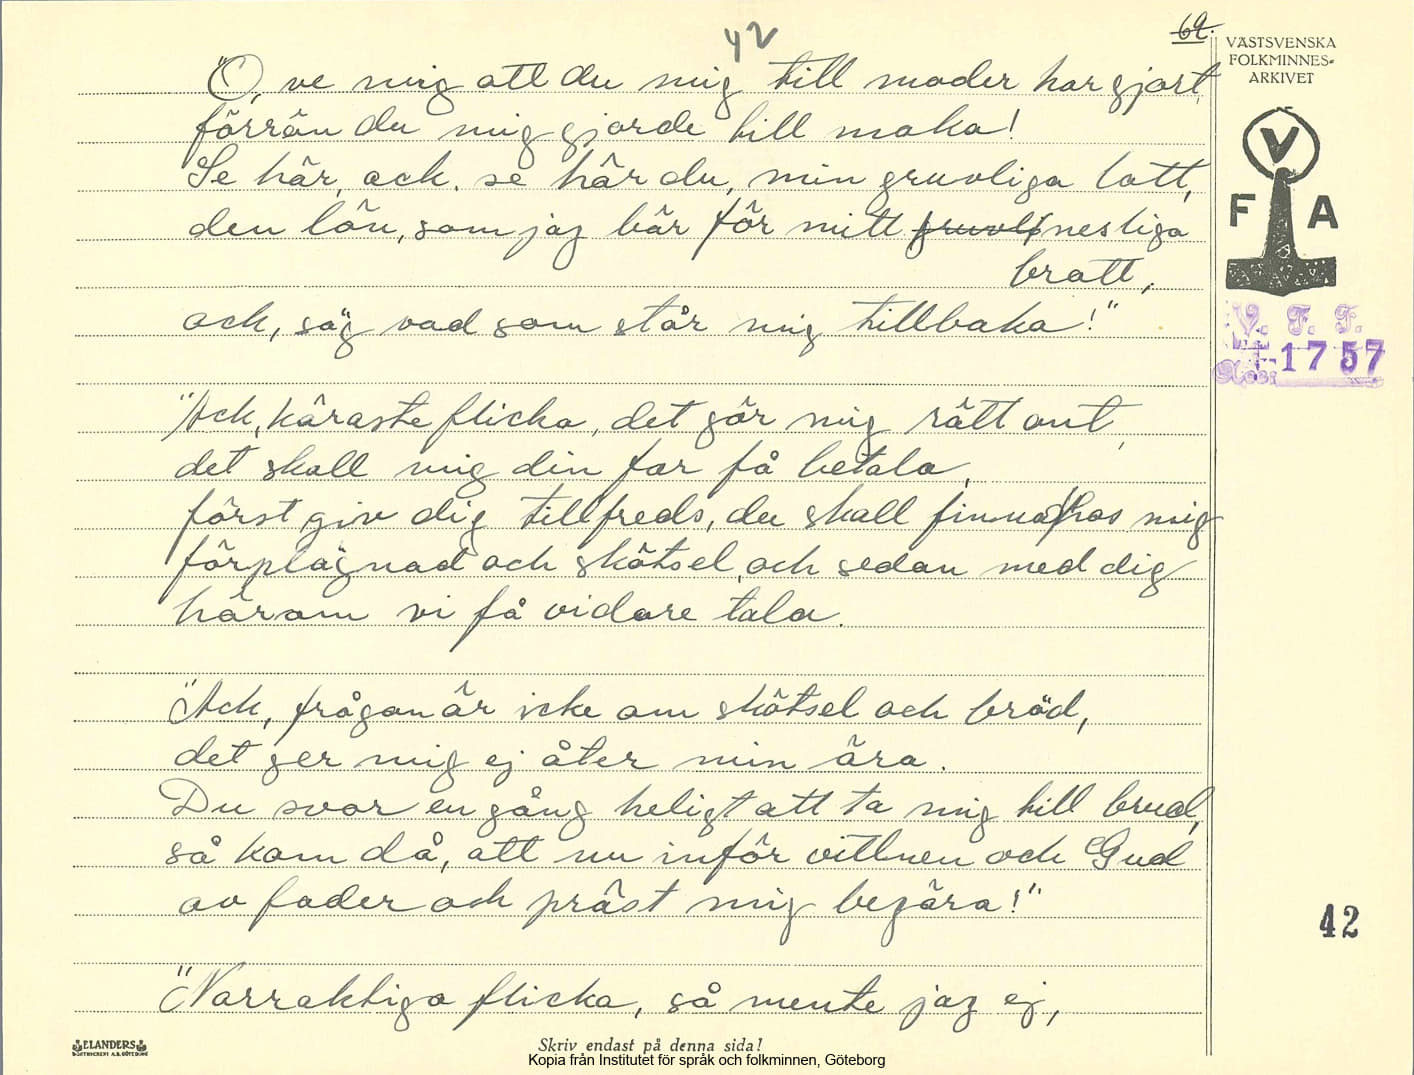 42
62.
VÄSTSVENSKA
FOLKMINNES-
ARKIVET
V
F A
V. F. F.
1757
"O, ve mig att du mig till moder har gjort,
förrän du mig gjorde till maka!
Se här, ack, se här du, min gruvliga lott,
den lön, som jag bär för mitt gruvl nesliga
brott,
ack, säg vad som står mig tillbaka!"
"Ack, käraste flicka, det gör mig rätt ont,
det skall mig din far få betala,
först giv dig tillfreds, du skall finna hos mig
förplägnad och skötsel, och sedan med dig
härom vi få vidare tala.
"Ack, frågan är icke om skötsel och bröd,
det ger mig ej åter min ära.
Du svor en gång heligt att ta mig till brud,
så kom då, att nu inför vittnen och Gud
av fader och präst mig begära!"
42
"Narraktiga flicka, så mente jag ej,
ELANDERS
BOKTRYCKERI A.B. GÖTEBORG
Skriv endast på denna sida!
Kopia från Institutet för språk och folkminnen, Göteborg